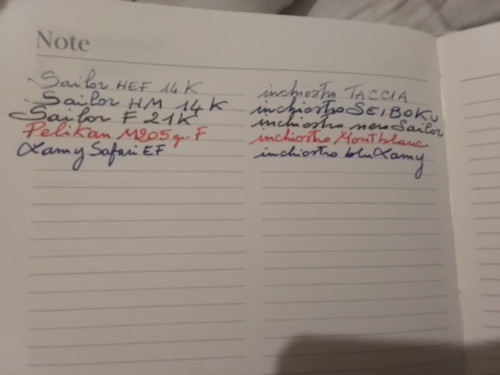 Note
Sailor HEF 14K inchiostro TACCIA
Sailor HM 14K inchiostro SEIBOKU
Sailor F 21K inchiostro nero Sailor
Pelikan M205 F inchiostro Montblanc
Lamy Safari EF inchiostro blu Lamy